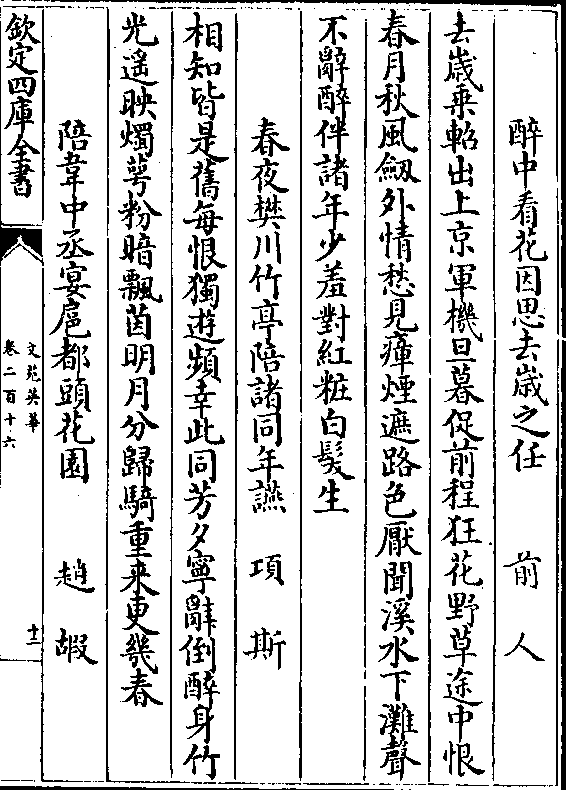 醉中看花因思去嵗之任　前人
去嵗乗軺出上京軍機旦暮促前程狂花野草途中恨
春月秋風劒外情愁見瘴煙遮路色厭聞溪水下灘聲
不辭醉伴諸年少羞對紅粧白髮生
春夜樊川竹亭陪諸同年讌　項斯
相知皆是舊每恨獨遊頻幸此同芳夕寧辭倒醉身竹
光遥映燭萼粉暗飄茵明月分歸騎重来更幾春
陪韋中丞宴扈都頭花園　趙嘏
欽定四庫全書
文苑英華
卷二百十六
十二